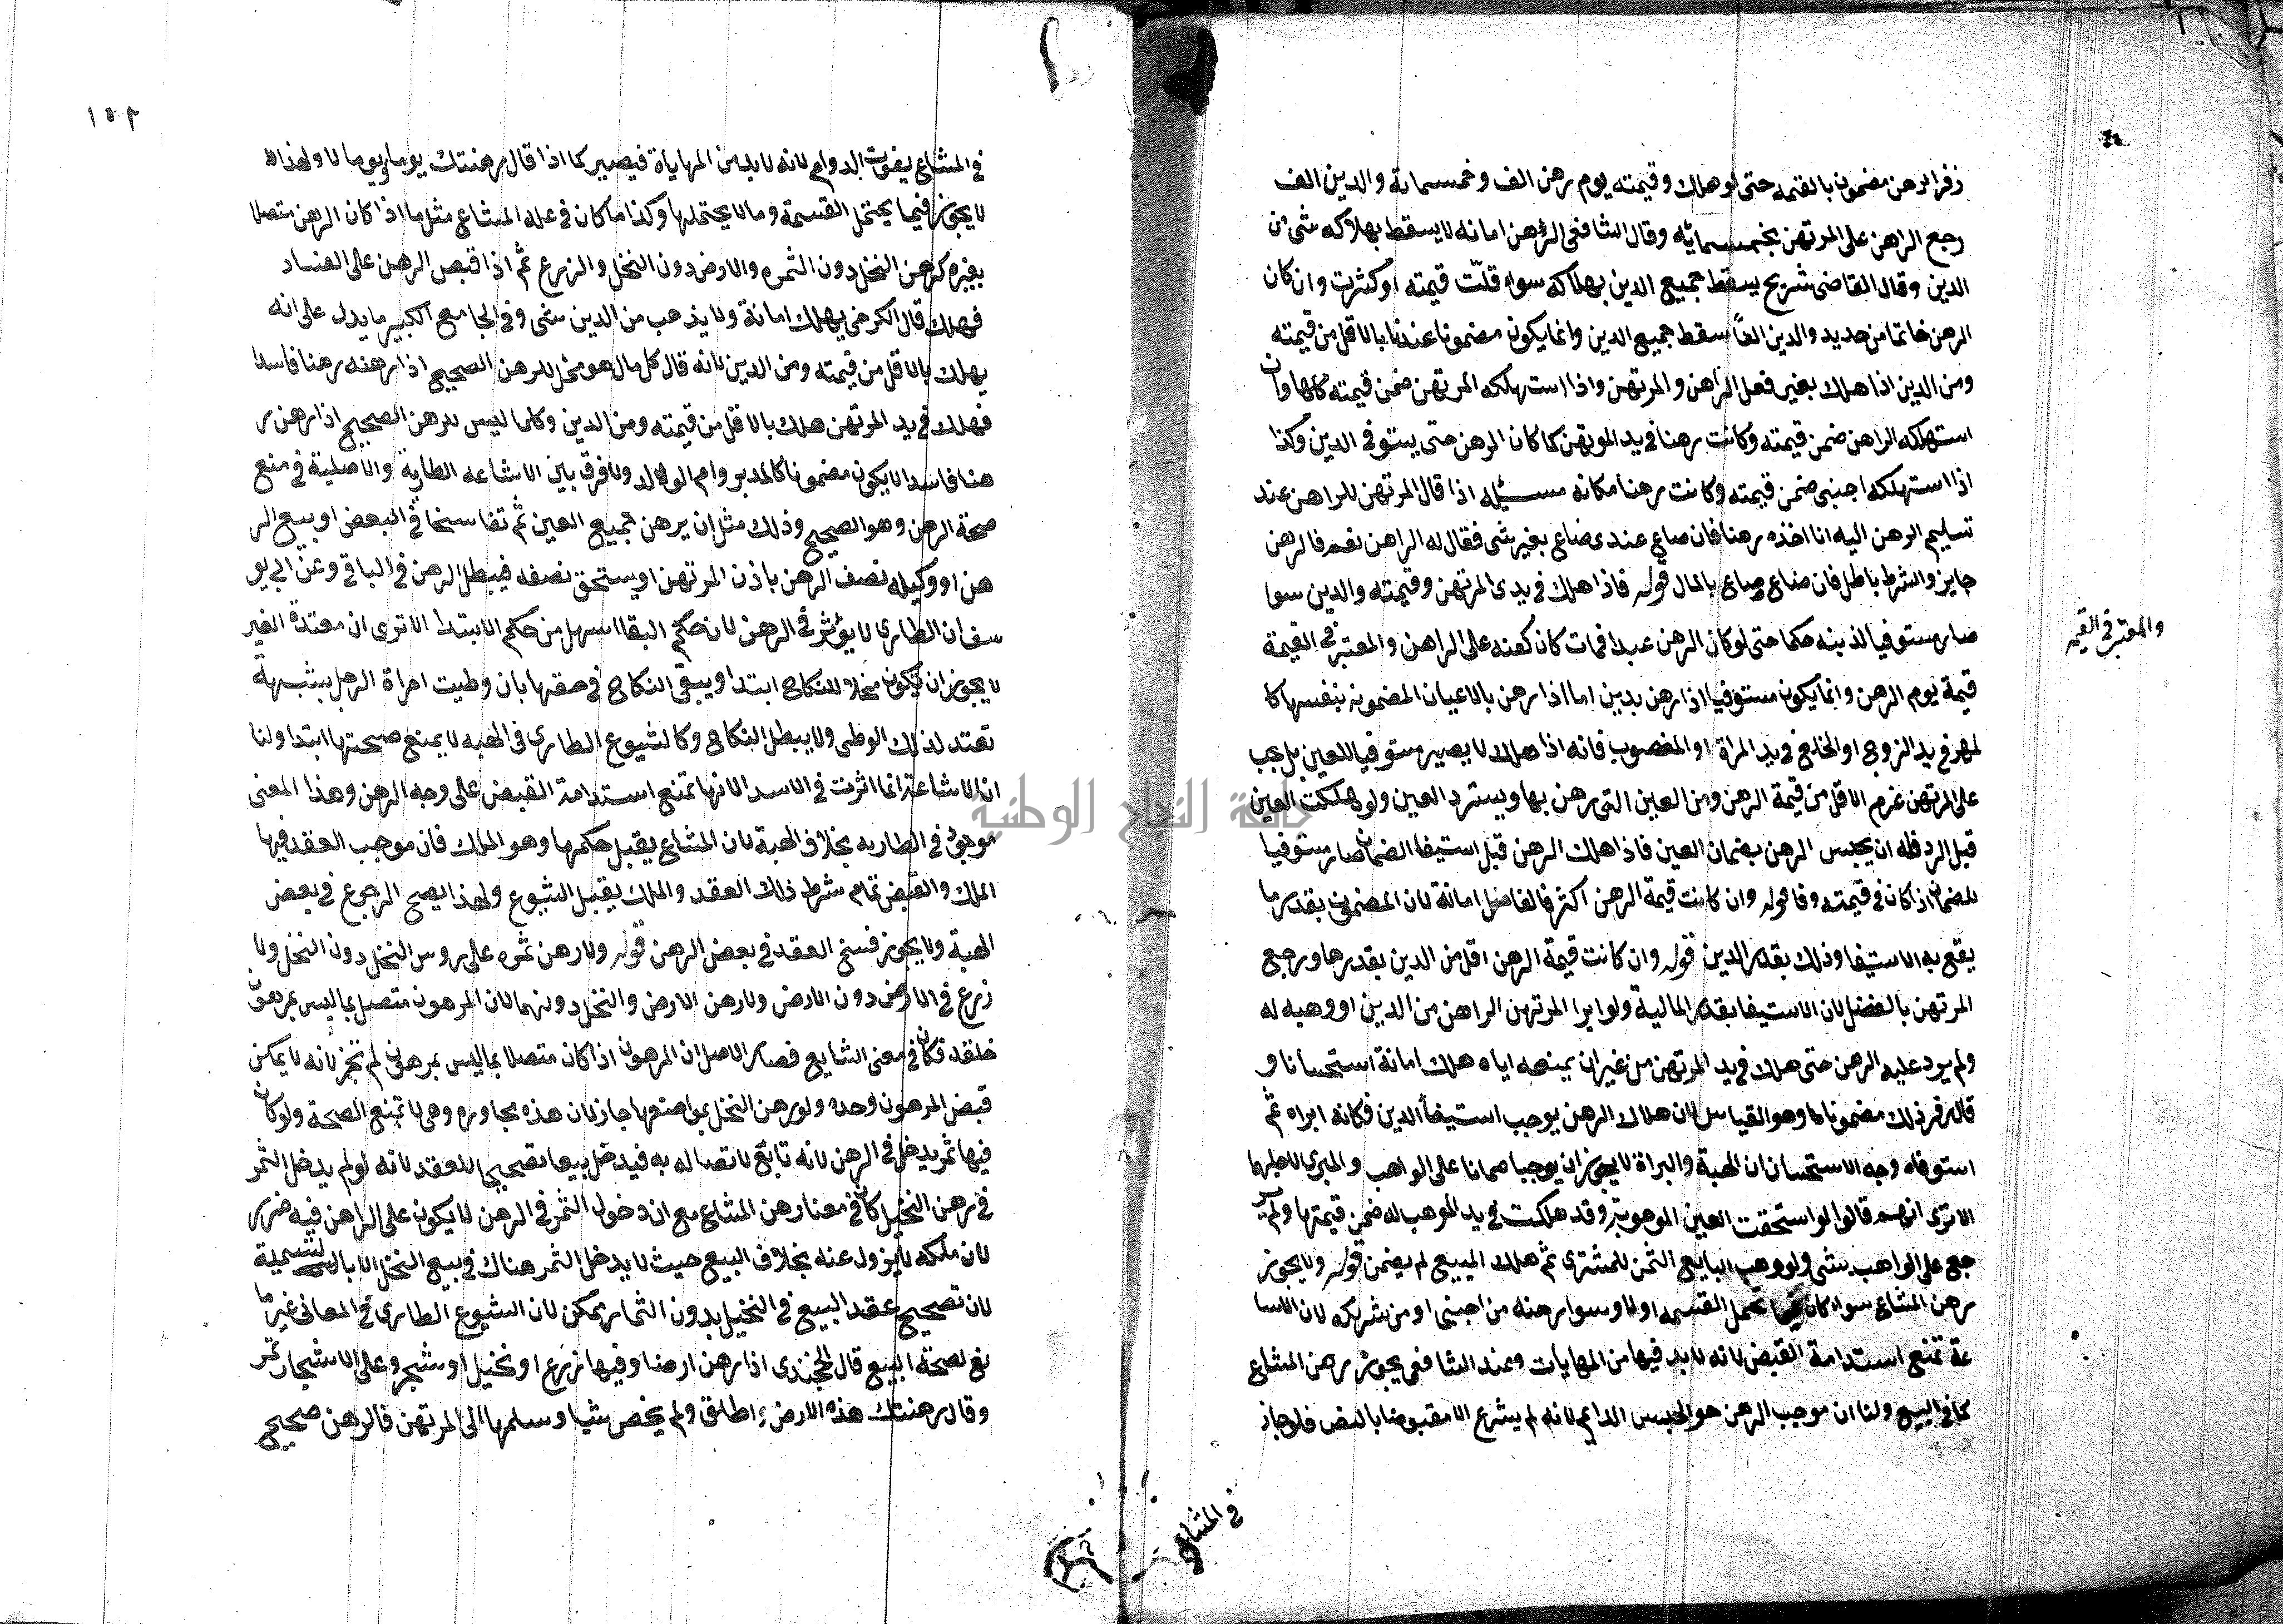 زفر الرهن مضمون بالقيمه حتى لو هلك وقيمته يوم رهن الف وخمسماية والدين الف
رجع الراهن على المرتهن بخمسمائه وقال الشافعى الرهن امانه لا يسقط بهلاكه شئ من
الدين وقال القاضى شريح يسقط جميع الدين بهلاكه سواء قلّت قيمته او كثرت وان كان
الرهن خاتما من حديد والدين الفاً سقط جميع الدين وانما يكون مضمونا عندنا بالاقل من قيمته
ومن الدين اذا هلك بغير فعل الراهن والمرتهن واذا استهلكه المرتهن ضمن قيمته كلها وان
استهلكه الراهن ضمن قيمته وكانت رهنا فى يد المرتهن كما كان الرهن حتى يستوفى الدين وكذا
اذا استهلكه اجنبى ضمن قيمته وكانت رهنا مكانه مسئله اذا قال المرتهن للراهن عند
تسليم الرهن اليه انا اخذه رهنا فان ضاع عندى ضاع بغير شى فقال له الراهن نعم فالرهن
جايز والشرط باطل فان ضاع ضاع بالمال قوله فاذا هلك فى يدى المرتهن وقيمته والدين سوا
صار مستوفيا لدينه حكما حتى لو كان الرهن عبدا فمات كان كفنه على الراهن والمعتبر فى القيمة
والمعتبر فى القيمه
قيمة يوم الرهن وانما يكون مستوفيا اذا رهن بدين اما اذا رهن بالاعيان المضمونه بنفسها كا
لمهر فى يد الزوج او الخلع فى يد المراة او المغصوب فانه اذا هلك لا يصير مستوفيا للعين بل يجب
على المرتهن غرم الاقل من قيمة الرهن ومن العين التى رهن بها ويسترد العين ولو هلكت العين
قبل الرد فله ان يحبس الرهن بضمان العين فاذا هلك الرهن قبل استيفا الضمان صار مستوفيا
للضمان اذا كان فى قيمته وفا قوله وان كانت قيمة الرهن اكثر فالفاضل امانة لان المضمون بقدر ما
يقع به الاستيفا وذلك بقدر الدين قوله وان كانت قيمة الرهن اقل من الدين بقدرها ورجع
المرتهن بالفضل لان الاستيفا بقدر المالية ولو ابرا المرتهن الراهن من الدين او وهبه له
ولم يرد عليه الرهن حتى هلك فى يد المرتهن من غير ان يمنعه اياه هلك امانة استحسانا و
قال زفر ذلك مضمونا وهو القياس لان هلاك الرهن يوجب استيفأ الدين فكانه ابراه ثم
استوفاه وجه الاستحسان ان الهبة والبراة لا يجوز ان يوجبا ضمانا على الواهب والمبرى لاجلهما
الا ترى انهم قالوا لو استحقت العين الموهوبة وقد هلكت فى يد الموهب له ضمن قيمتها ولم ير
جع على الواهب بشى ولو وهب البايع الثمن للمشترى ثم هلك المبيع لم يضمن قوله ولا يجوز
رهن المشاع سواء كان فيما يحتمل القسمه اولا وسوا رهنه من اجنبى او من شريكه لان الاشا
عة تمنع استدامة القبض لانه لا بد فيها من المهايات وعند الشافعى يجوز رهن المشاع
كما فى البيع ولنا ان موجب الرهن هو الحبس الدايم لانه لم يشرع الا مقبوضا بالنص فلو جاز
فى المشاع
١٥٢
فى المشاع يفوت الدوام لانه لا بد من المهاياة فيصير كما اذا قال رهنتك يوما ويوما لا ولهذا
لا يجوز فيما يحتمل القسمة وما لا يحتملها وكذا ما كان فى عله المشاع مثل ما اذا كان الرهن متصلا
بغيره كرهن النخل دون الثمره والارض دون النخل والزرع ثم اذا قبض الرهن على الفساد
فهلك قال الكرخى يهلك امانة ولا يذهب من الدين شى وفى الجامع الكبير ما يدل على انه
يهلك بالاقل من قيمته ومن الدين لانه قال كل مال هو محل للرهن الصحيح اذا رهنه رهنا فاسدا
فهلك فى يد المرتهن هلك بالاقل من قيمته ومن الدين وكلما ليس للرهن الصحيح اذا رهن ر
هنا فاسدا لا يكون مضمونا كالمدبر وام الولد ولا فرق بين الاشاعه الطارية والاصلية فى منع
صحة الرهن وهو الصحيح وذلك مثل ان يرهن جميع العين ثم تفاسخا فى البعض او يبيع الر
هن او وكيله نصف الرهن باذن المرتهن او يستحق نصفه فيبطل الرهن فى الباقى وعن ابى يو
سف ان الطارى لا يؤثر فى الرهن لان حكم البقا اسهل من حكم الابتدا الا ترى ان معتدة الغير
لا يجوز ان تكون محلا للنكاح ابتدا ويبقى النكاح فى حقها بان وطيت امراة الرجل بشبهة
تعتد لذلك الوطى ولا يبطل النكاح وكالشيوع الطارى فى الهبه لا يمنع صحتها ابتدا ولنا
ان الاشاعة انما اثرت فى الابتدا لانها تمنع استدامة القبض على وجه الرهن وهذا المعنى
موجود فى الطاريه بخلاف الهبة لان المشاع يقبل حكمها وهو الملك فان موجب العقد فيها
الملك والقبض تمام شرط ذلك العقد والملك يقبل الشيوع ولهذا يصح الرجوع فى بعض
الهبة ولا يجوز فسخ العقد فى بعض الرهن قوله ولا رهن ثمره على روس النخل دون النخل ولا
زرع فى الارض دون الارض ولا رهن الارض والنخل دونهما لان المرهون متصل بما ليس بمرهون
خلقه فكان فى معنى الشايع فصار الاصل ان المرهون اذا كان متصلا بما ليس بمرهون لم تجز لانه لا يمكن
قبض المرهون وحده ولو رهن النخل بمواضعها جاز لان هذه مجاوره وهى لا تمنع الصحة ولو كان
فيها ثمر يدخل فى الرهن لانه تابع لاتصاله به فيدخل تبعا تصحيحا للعقد لانه لو لم يدخل الثمر
فى رهن النخيل كان فى معنا رهن المشاع مع ان دخول الثمر فى الرهن لا يكون على الراهن فيه ضرر
لان ملكه لا يزول عنه بخلاف البيع حيث لا يدخل الثمر هناك فى بيع النخل الا بالتسمية
لان تصحيح عقد البيع فى النخيل بدون الثمار ممكن لان الشيوع الطارى فى المعانى غير ما
نع لصحة البيع قال الخجندى اذا رهن ارضا وفيها زرع او نخيل او شجر وعلى الاشجار ثمر
وقال رهنتك هذه الارض واطلق ولم يخص شيا وسلمها الى المرتهن فالرهن صحيح
جامعة النجاح الوطنية